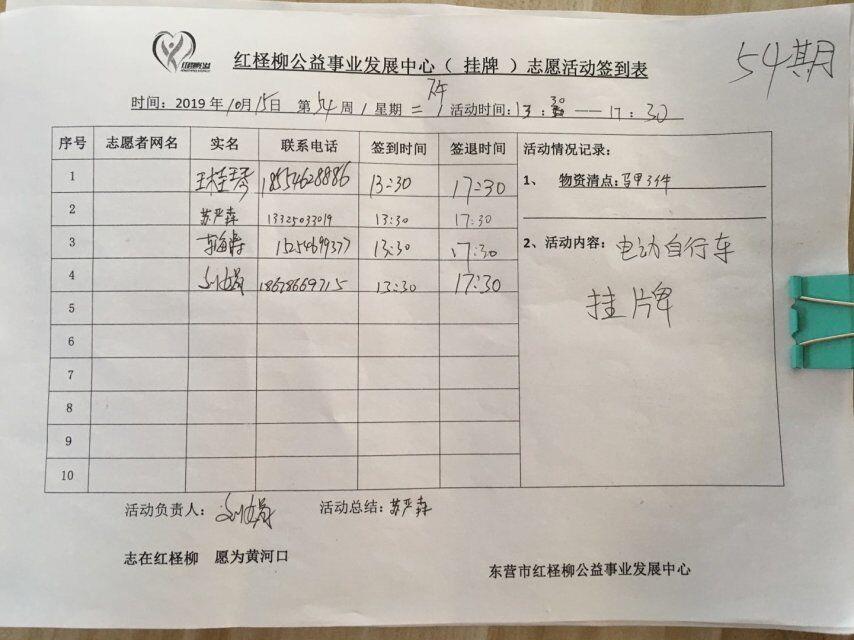 54期
红柽柳公益事业发展中心（ 挂牌 ）志愿活动签到表
时间：2019年10月15日 第54周/星期二 下午/活动时间：13：30——17：30
序号 志愿者网名 实名 联系电话 签到时间 签退时间
1 王桂琴 18554628886 13:30 17:30
2 苏严森 13325033019 13:30 17:30
3 15254699377 13:30 17:30
4 刘娟 18678669715 13:30 17:30
5
6
7
8
9
10
活动情况记录：
1、 物资清点：马甲3件
2、活动内容：电动自行车
挂牌
活动负责人：刘娟 活动总结：苏严森
志在红柽柳 愿为黄河口
东营市红柽柳公益事业发展中心